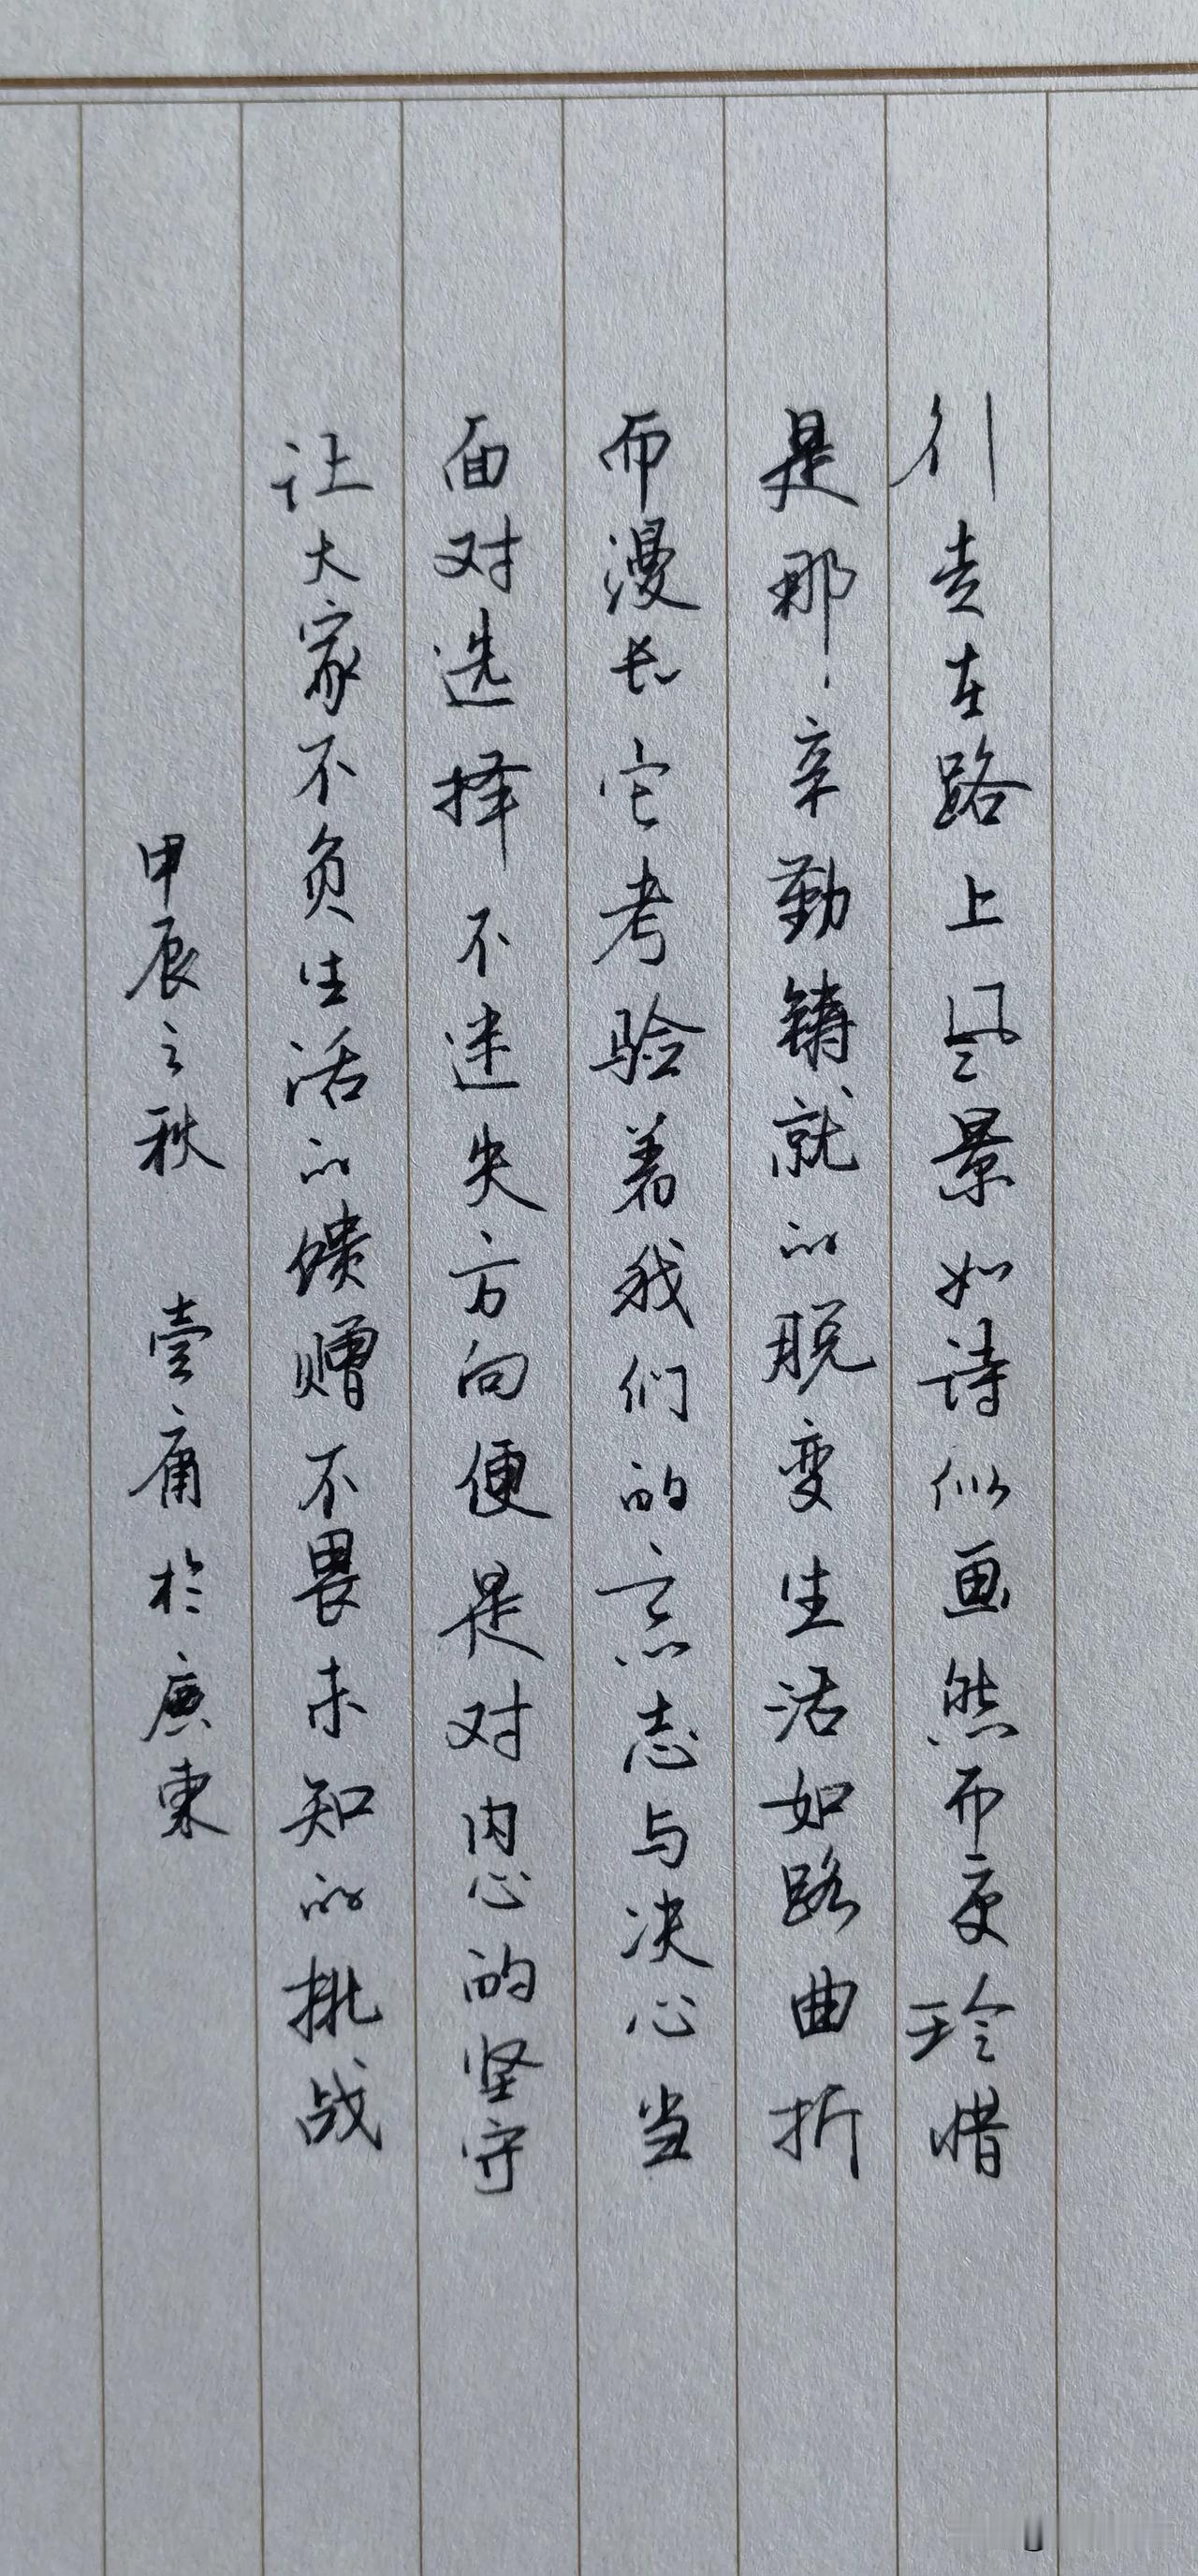 行走在路上风景如诗似画然而更珍惜
是那辛勤铸就的脱变生活如路曲折
而漫长它考验着我们的意志与决心当
面对选择不迷失方向便是对内心的坚守
让大家不负生活的馈赠不畏未知的挑战
甲辰之秋 壹庸於廣東